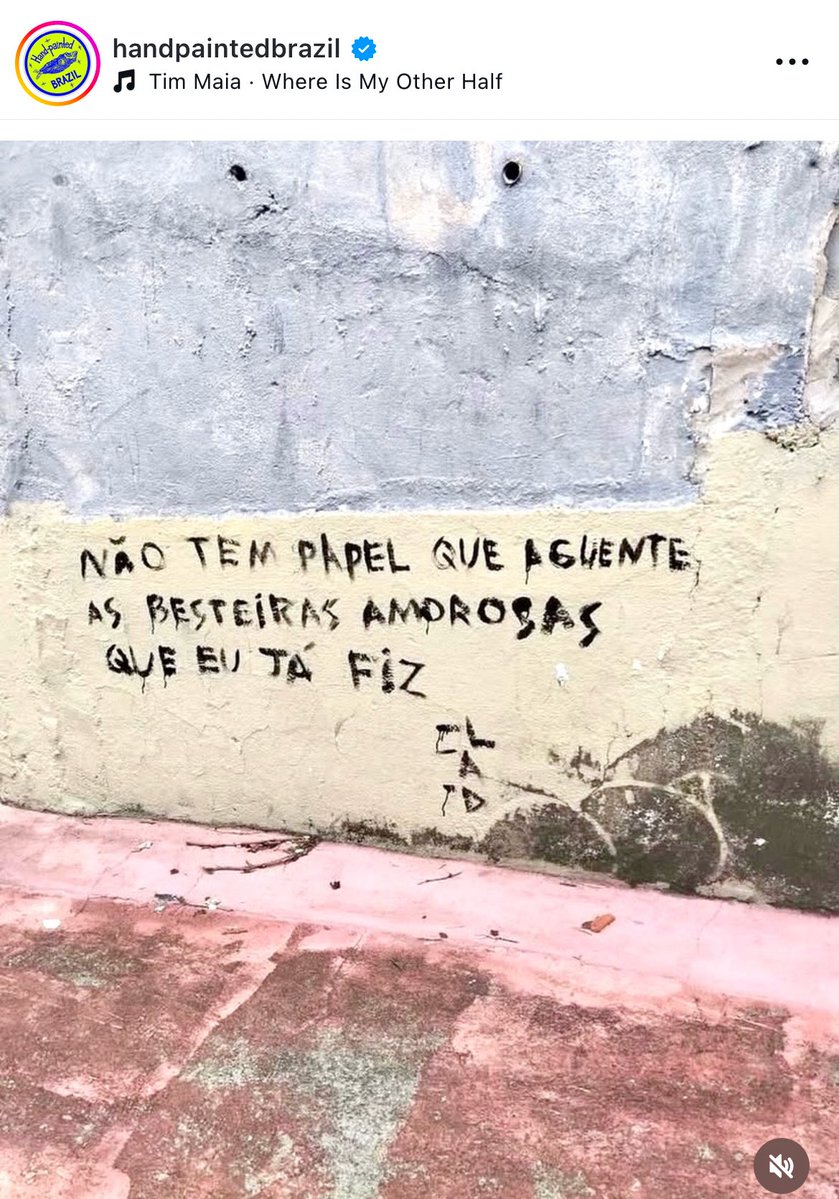 Hand-painted
BRAZIL
handpaintedbrazil
Tim Maia · Where Is My Other Half
NÃO TEM PAPEL QUE AGÜENTE
AS BESTEIRAS AMOROSAS
QUE EU TÁ FIZ